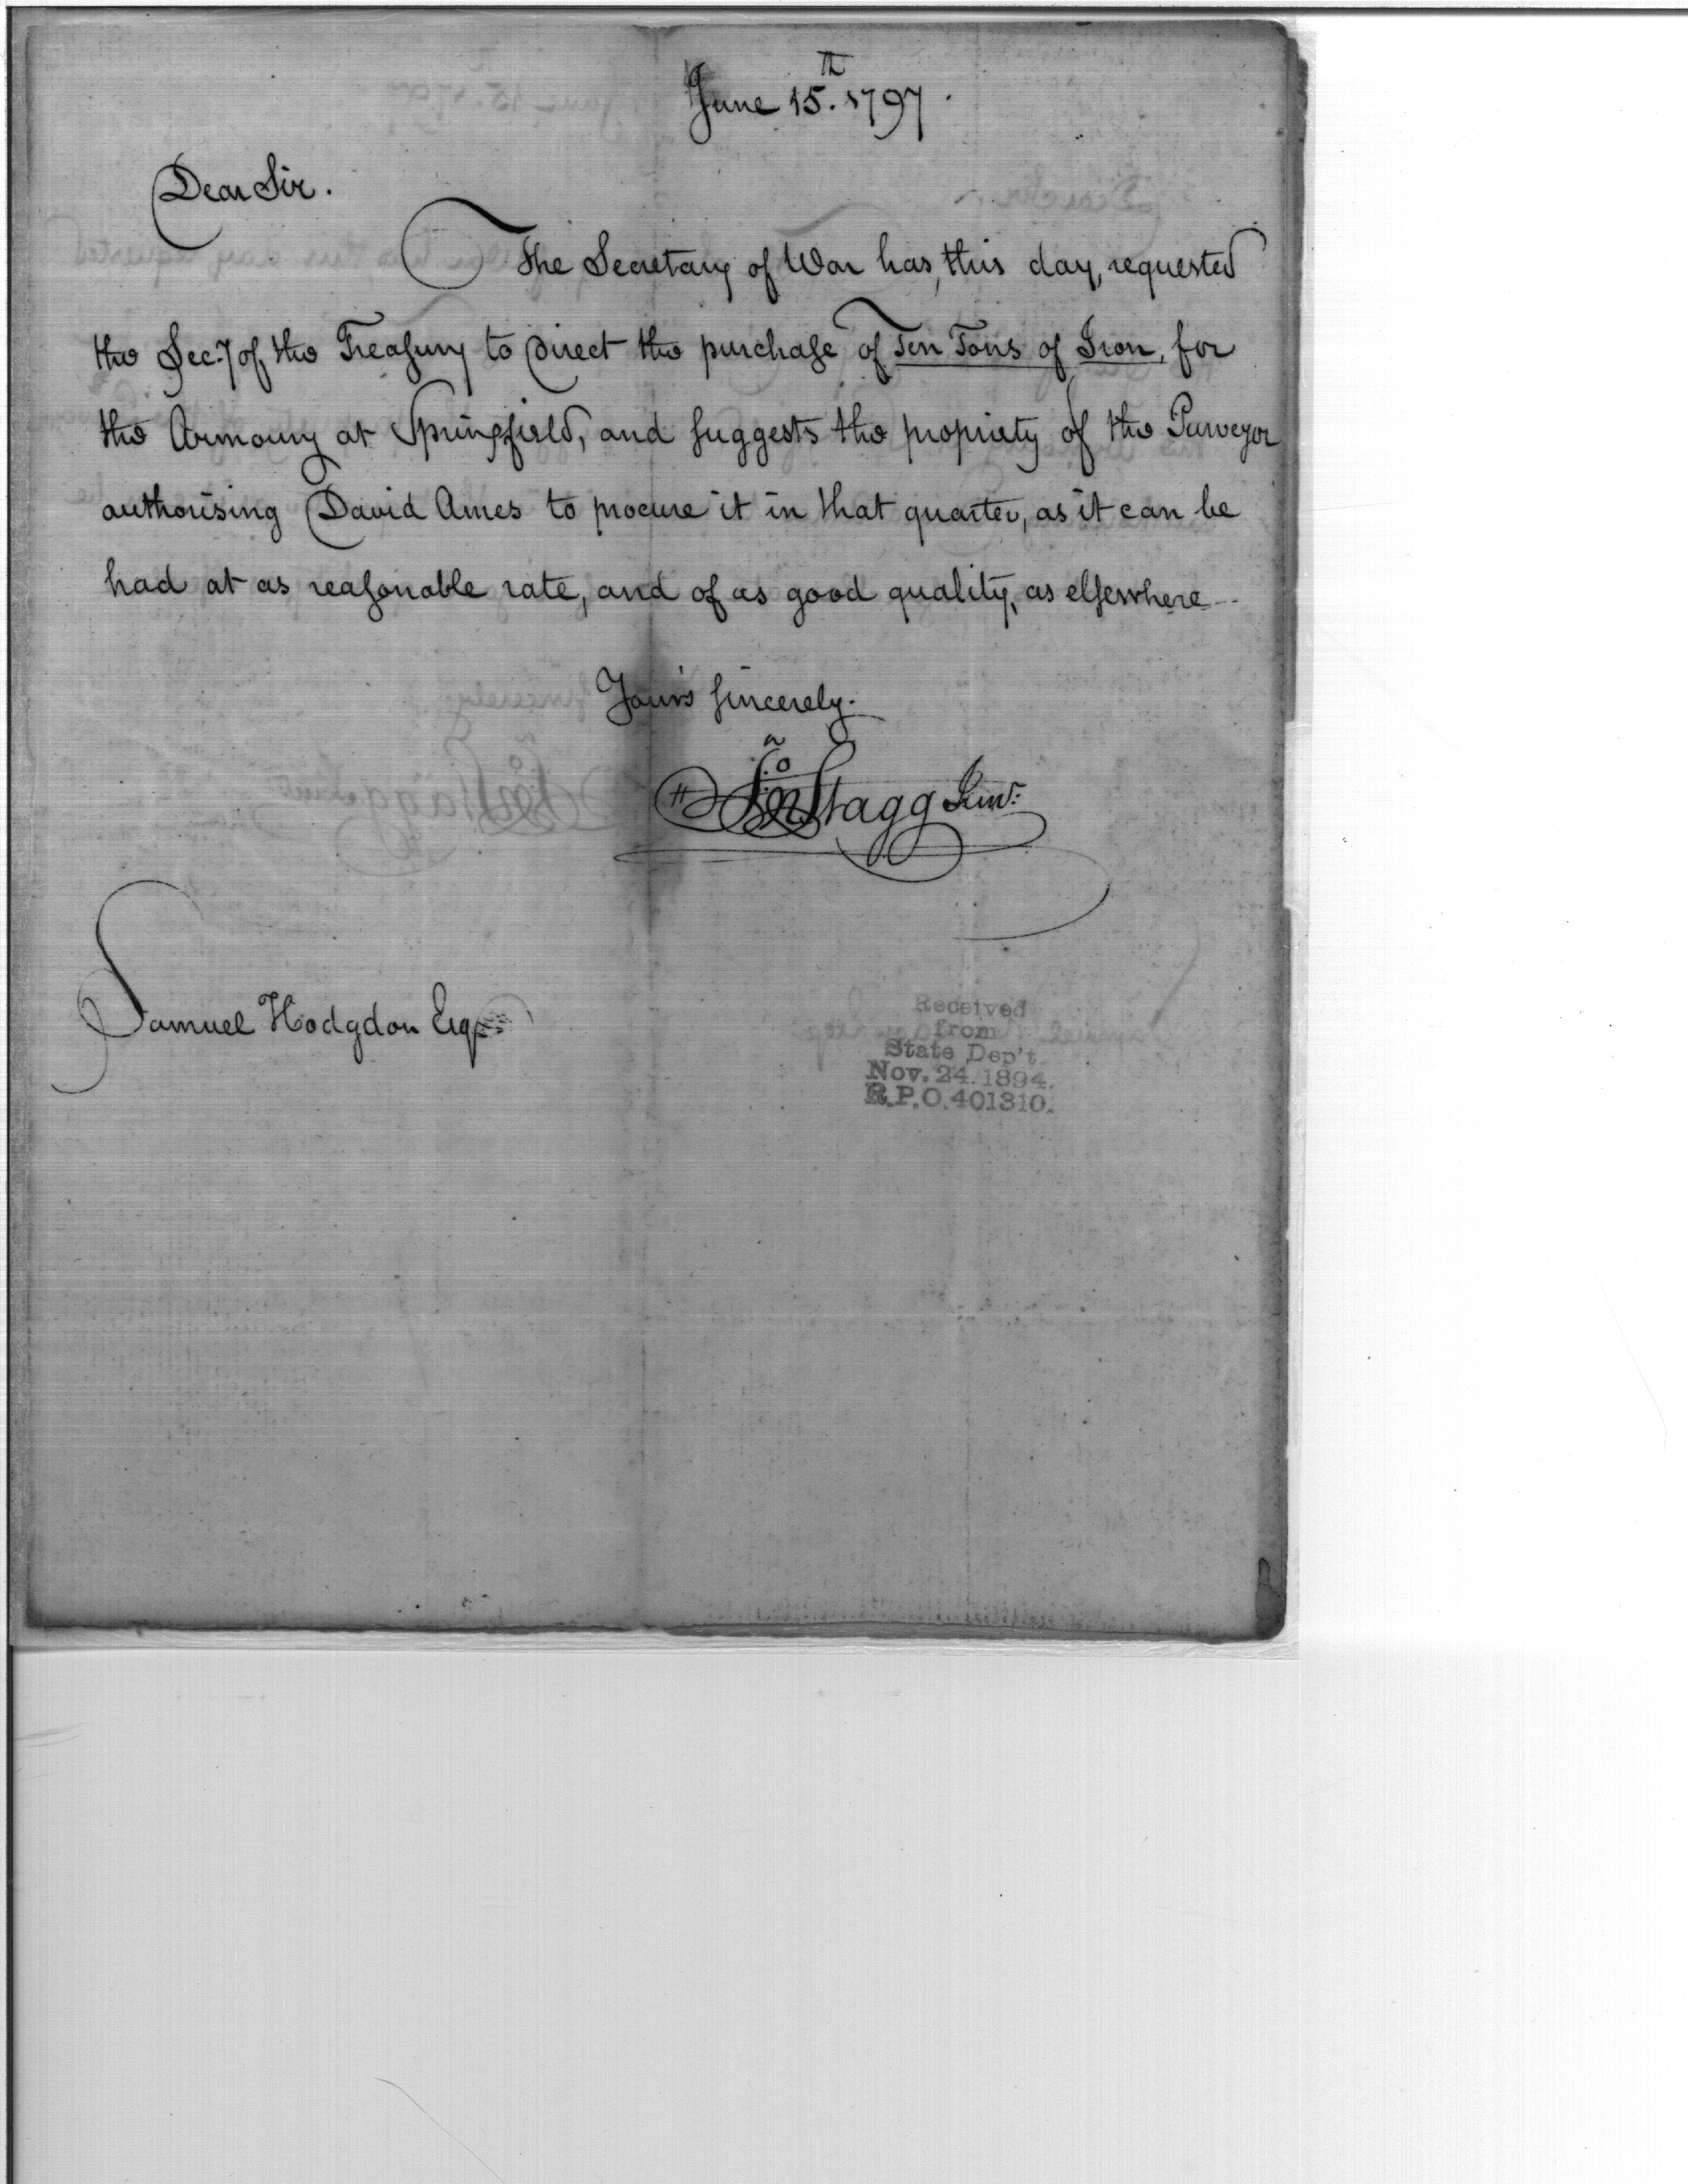 June 15.th 1797.
Dear Sir.
The Secretary of War has, this day, requested
the Sec.y of the Treasury to direct the purchase of Ten Tons of Iron, for
the Armoury at Springfield, and suggests the propriety of the Purveyor
authorising David Ames to procure it in that quarter, as it can be
had at as reasonable rate, and of as good quality, as elsewhere
Yours sincerely.
Jno Stagg Junr.
Samuel Hodgdon Esqr
Received
from
State Dep't
Nov. 24. 1894.
R.P.O. 401310.